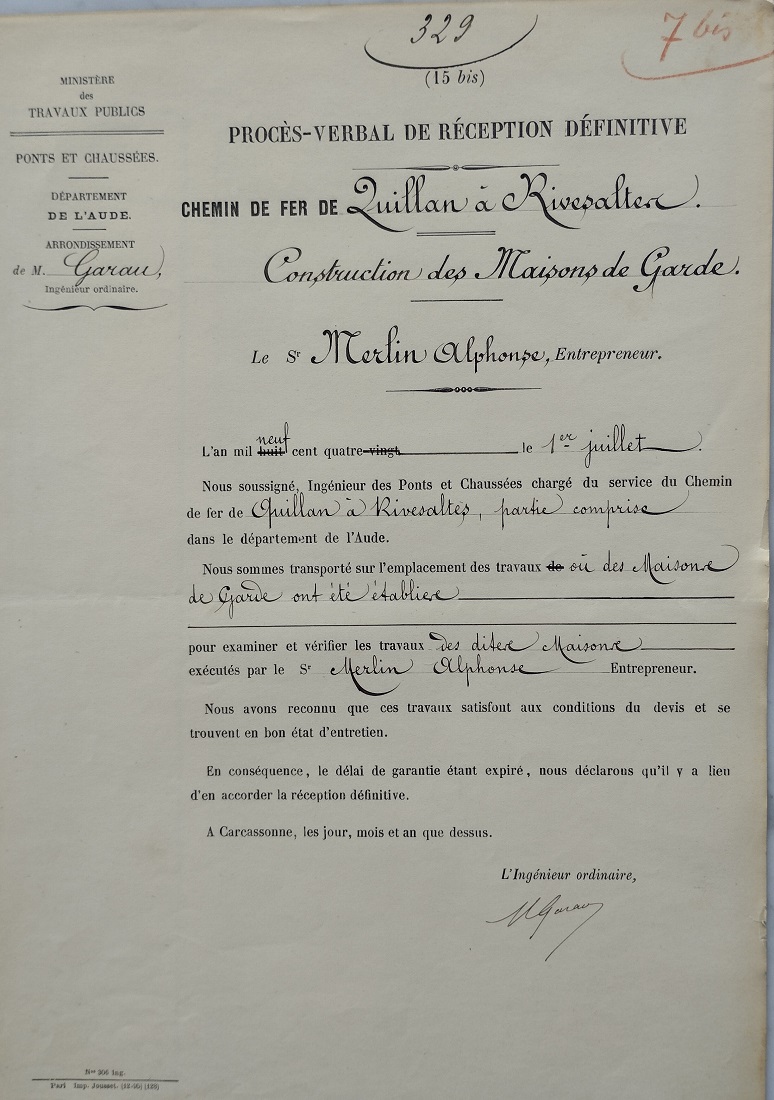 329
7 bis
(15 bis)
MINISTÈRE
des
TRAVAUX PUBLICS
PONTS ET CHAUSSÉES.
DÉPARTEMENT
DE L'AUDE.
ARRONDISSEMENT
de M. Garau,
Ingénieur ordinaire.
PROCÈS-VERBAL DE RÉCEPTION DÉFINITIVE
CHEMIN DE FER DE Quillan à Rivesaltes.
Construction des Maisons de Garde.
Le Sr Merlin Alphonse, Entrepreneur.
L'an mil huit neuf cent quatre-vingt le 1er juillet.
Nous soussigné, Ingénieur des Ponts et Chaussées chargé du service du Chemin
de fer de Quillan à Rivesaltes, partie comprise
dans le département de l'Aude.
Nous sommes transporté sur l'emplacement des travaux de où des Maisons
de Garde ont été établies
pour examiner et vérifier les travaux des dites Maisons
exécutés par le Sr Merlin Alphonse Entrepreneur.
Nous avons reconnu que ces travaux satisfont aux conditions du devis et se
trouvent en bon état d'entretien.
En conséquence, le délai de garantie étant expiré, nous déclarons qu'il y a lieu
d'en accorder la réception définitive.
A Carcassonne, les jour, mois et an que dessus.
L'Ingénieur ordinaire,
Garau
Nos 306 Ing.
Imp. Jousset.